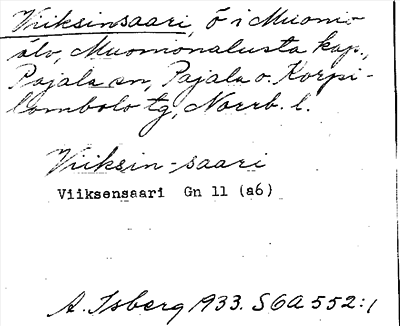 Viiksinsaari, ö i Muonio
älv, Muonionalusta kap.,
Pajala sn, Pajala o. Korpi-
lombolo tg, Norrb. l.
Viiksin-saari
Viiksensaari Gn 11 (a6)
A. Isberg 1933. SOA 552:1